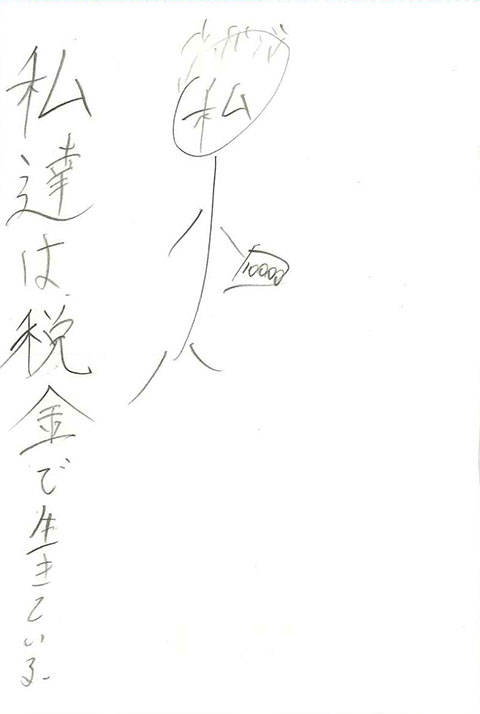 私達は税金で生きている。
私
10000